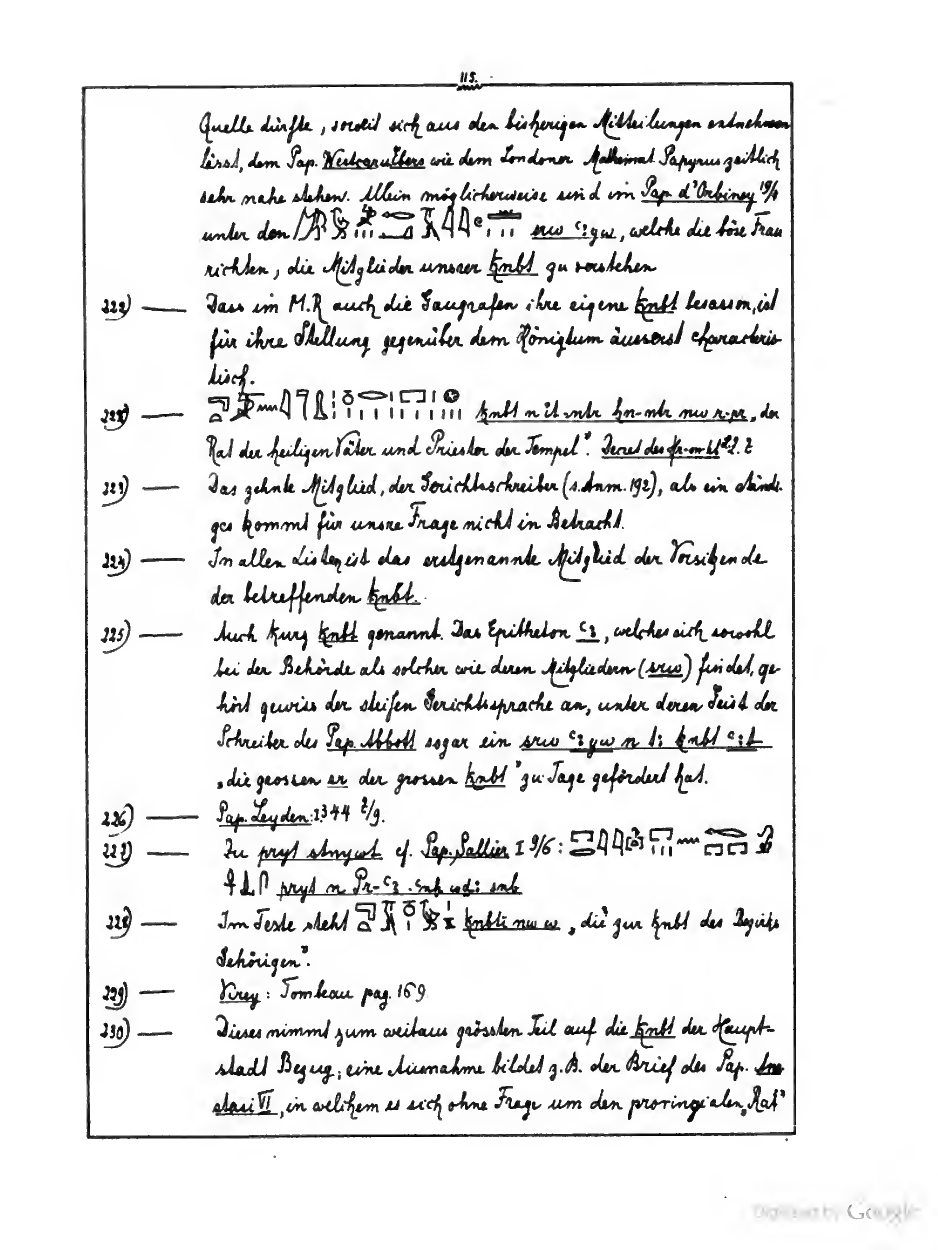 115.
Quelle dürfte, soweit sich aus den bisherigen Mitteilungen entnehmen
lässt, dem Pap. Westcar u. Ebers wie dem Londoner Mathemat. Papyrus zeitlich
sehr nahe stehen. Allein möglicherweise sind im Pap. d'Orbiney 19/4
unter den srw ꜥꜣyw, welche die böse Frau
richten, die Mitglieder unsrer Knbt zu verstehen
222) — Dass im M.R auch die Gaugrafen ihre eigene Knbt besassen, ist
für ihre Stellung gegenüber dem Königtum äusserst characteris-
tisch.
knbt n it-ntr ḥn-ntr nw r-pr, der
Rat der heiligen Väter und Priester der Tempel". Decret des
Das zehnte Mitglied, der Gerichtsschreiber (s. Anm. 192), als ein ständi-
ges kommt für unsre Frage nicht in Betracht.
224) — In allen Listen ist das erstgenannte Mitglied der Vorsitzende
der betreffenden Knbt.
225) — Auch kurz Knbt genannt. Das Epitheton ꜥꜣ, welches sich sowohl
bei der Behörde als solcher wie deren Mitgliedern (srw) findet, ge-
hört gewiss der steifen Gerichtssprache an, unter deren Geist der
Schreiber des Pap. Abbott sogar ein srw ꜥꜣyw n tꜣ knbt ꜥꜣt
„die grossen sr der grossen knbt" zu Tage gefördert hat.
226) — Pap. Leyden: I 344 2/9.
227) — Zu pryt šnywt cf. Pap. Sallier I 9/6:
pryt n Pr-ꜥꜣ ꜥnḫ wḏꜣ snb
228) — Im Texte steht knbti nw w „die zur Knbt des Bezirks
Gehörigen".
229) — Virey: Tombeau pag. 169
230) — Dieses nimmt zum weitaus grössten Teil auf die Knbt der Haupt-
stadt Bezug; eine Ausnahme bildet z.B. der Brief des Pap. Ana-
stasi VI, in welchem es sich ohne Frage um den provinzialen „Rat"
Digitized by Google